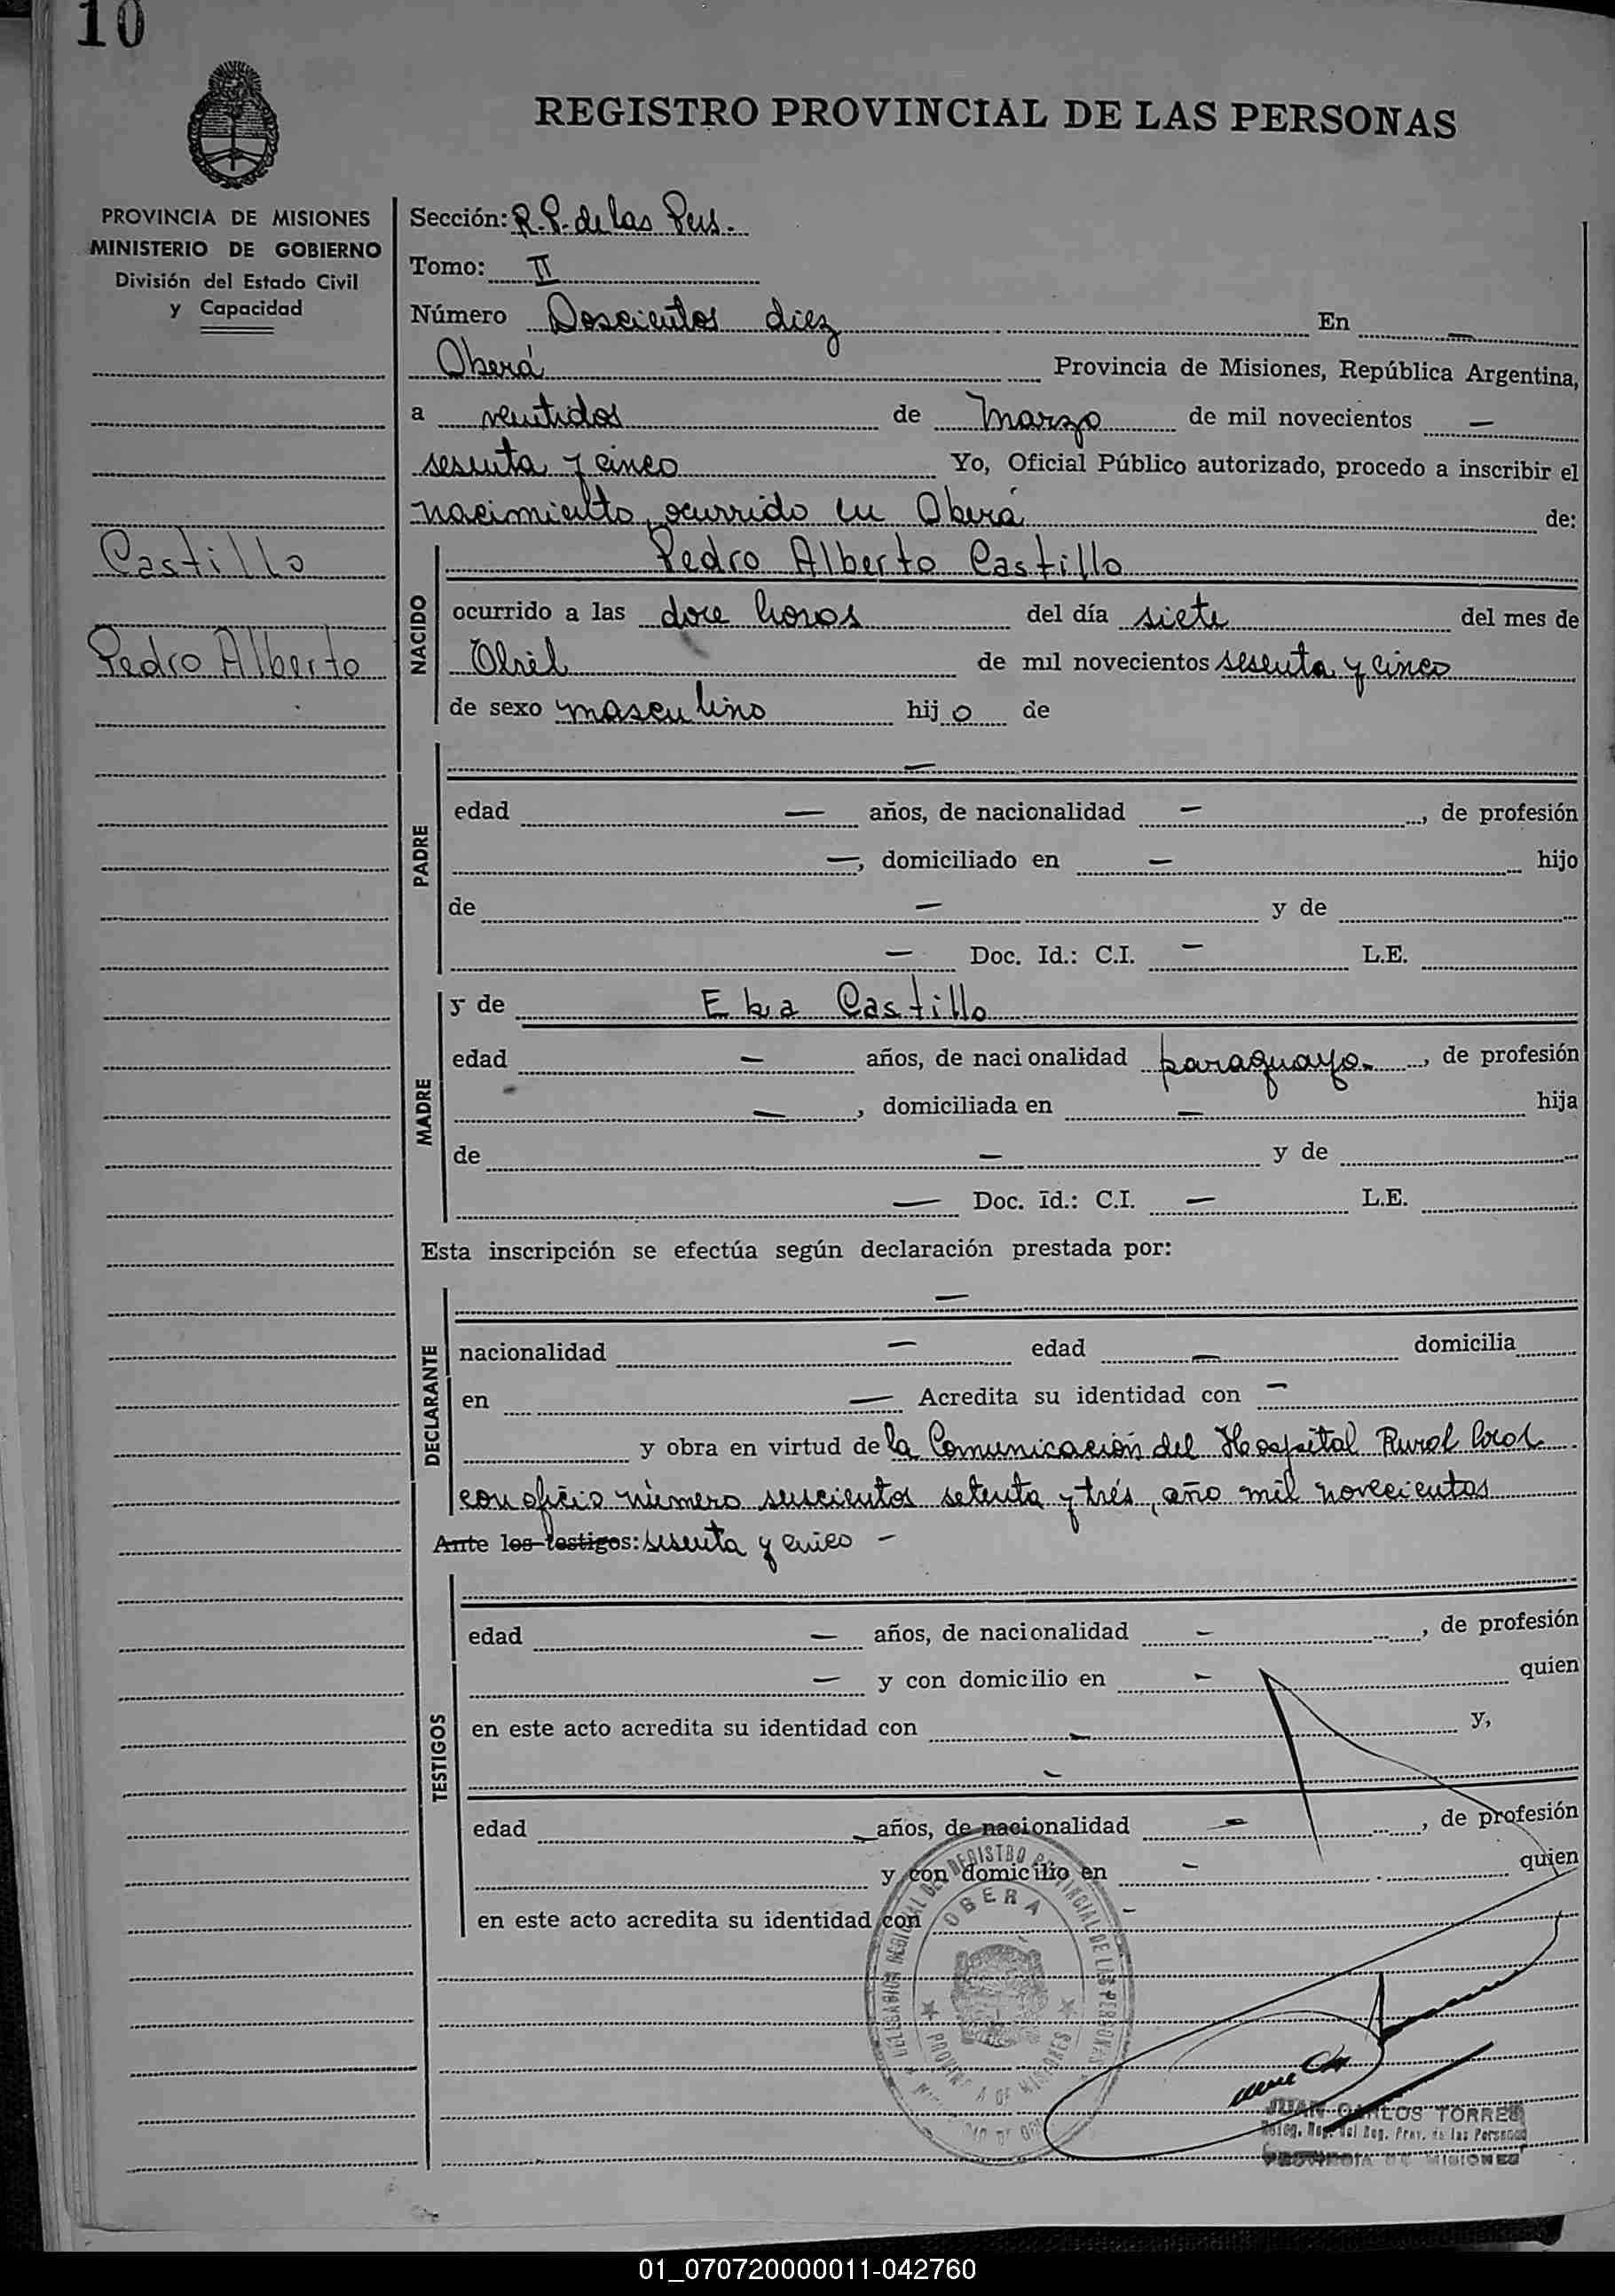 10
REGISTRO PROVINCIAL DE LAS PERSONAS
PROVINCIA DE MISIONES
MINISTERIO DE GOBIERNO
División del Estado Civil
y Capacidad
Sección: R.P. de las Pers.
Tomo: II
Número Doscientos diez En —
Oberá Provincia de Misiones, República Argentina,
a ventidos de Marzo de mil novecientos —
sesenta y cinco Yo, Oficial Público autorizado, procedo a inscribir el
nacimiento, ocurrido en Oberá de:
Castillo
Pedro Alberto
NACIDO
Pedro Alberto Castillo
ocurrido a las doce horas del día siete del mes de
Abril de mil novecientos sesenta y cinco
de sexo masculino hijo de
PADRE
—
edad — años, de nacionalidad — , de profesión
—, domiciliado en — hijo
de — y de
— Doc. Id.: C.I. — L.E.
MADRE
y de Eba Castillo
edad — años, de nacionalidad paraguaya.- , de profesión
— , domiciliada en — hija
de — y de
— Doc. Id.: C.I. — L.E.
Esta inscripción se efectúa según declaración prestada por:
DECLARANTE
—
nacionalidad — edad — domicilia
en — Acredita su identidad con —
y obra en virtud de la Comunicación del Hospital Rural local
con oficio número seiscientos setenta y trés, año mil novecientos
Ante los testigos: sesenta y cinco —
TESTIGOS
edad — años, de nacionalidad — , de profesión
— y con domicilio en — quien
en este acto acredita su identidad con — y,
—
edad — años, de nacionalidad — , de profesión
y con domicilio en — quien
en este acto acredita su identidad con —
DELEGACION REGIONAL DEL REGISTRO PROVINCIAL DE LAS PERSONAS
OBERA
PROVINCIA DE MISIONES
JUAN CARLOS TORRES
Deleg. Reg. del Reg. Prov. de las Personas
PROVINCIA DE MISIONES
01_070720000011-042760